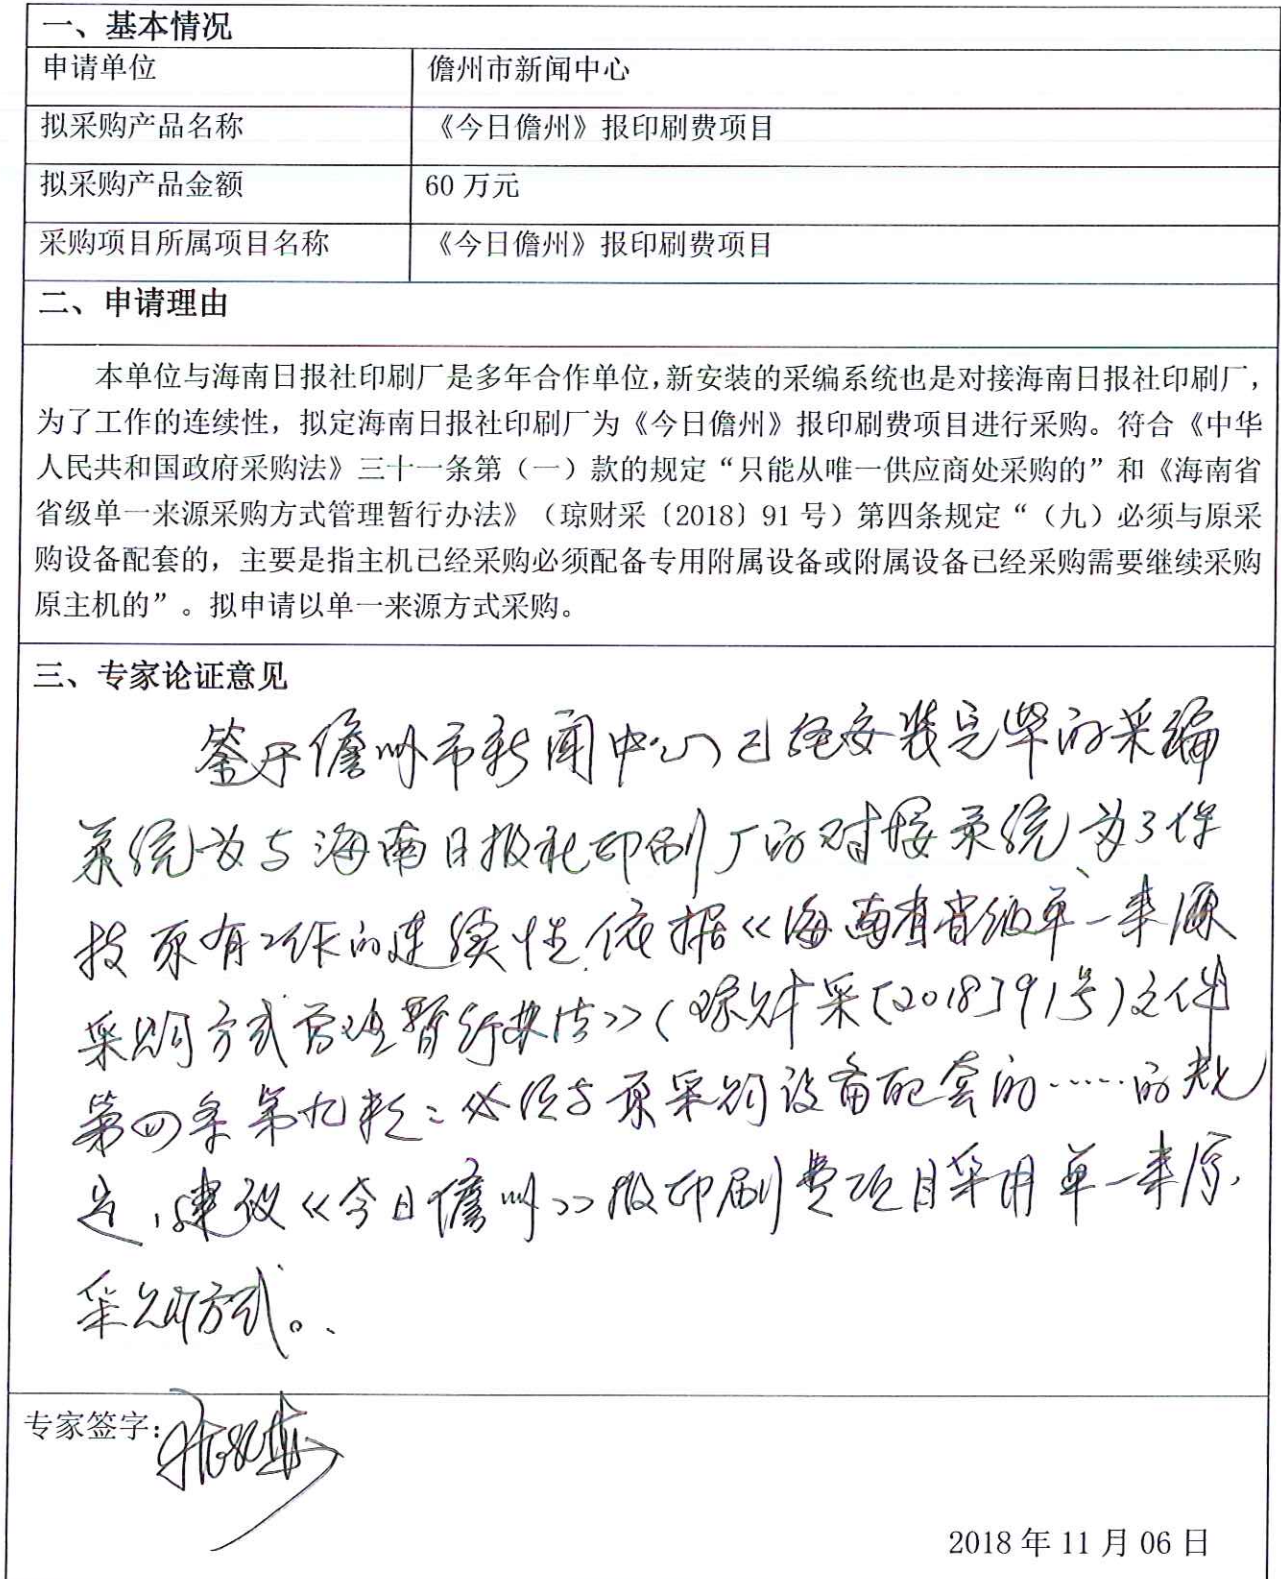 一、基本情况
申请单位 儋州市新闻中心
拟采购产品名称 《今日儋州》报印刷费项目
拟采购产品金额 60万元
采购项目所属项目名称 《今日儋州》报印刷费项目
二、申请理由
本单位与海南日报社印刷厂是多年合作单位,新安装的采编系统也是对接海南日报社印刷厂,
为了工作的连续性，拟定海南日报社印刷厂为《今日儋州》报印刷费项目进行采购。符合《中华
人民共和国政府采购法》三十一条第（一）款的规定“只能从唯一供应商处采购的”和《海南省
省级单一来源采购方式管理暂行办法》（琼财采〔2018〕91号）第四条规定“（九）必须与原采
购设备配套的，主要是指主机已经采购必须配备专用附属设备或附属设备已经采购需要继续采购
原主机的”。拟申请以单一来源方式采购。
三、专家论证意见
鉴于儋州市新闻中心已经安装完毕的采编
系统为与海南日报社印刷厂的对接系统、为了保
持原有工作的连续性,依据《海南省省级单一来源
采购方式管理暂行办法》(琼财采[2018]91号)文件
第四条第九款:必须与原采购设备配套的……的规
定,建议《今日儋州》报印刷费项目采用单一来源
采购方式。
专家签字:
2018年11月06日